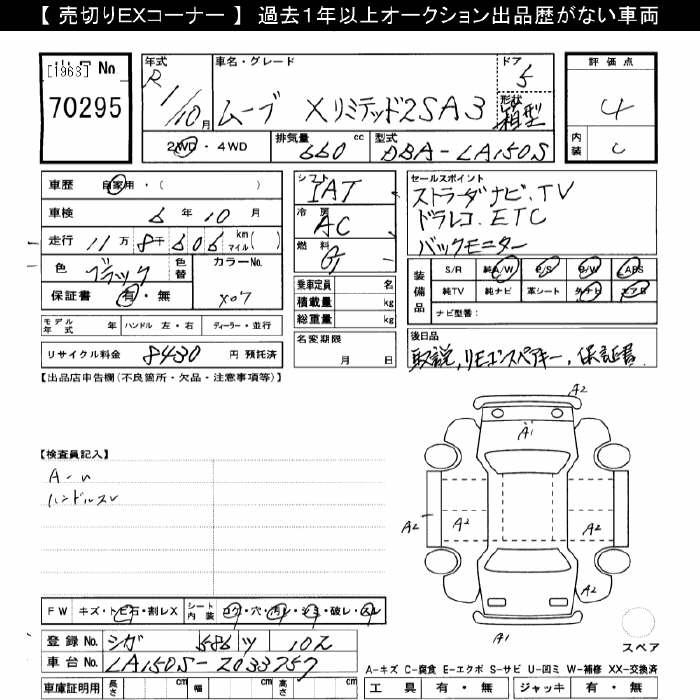 【 売切りEXコーナー 】 過去１年以上オークション出品歴がない車両
[1963] No
70295
年式
R 1/10月
車名・グレード
ムーブ XリミテッドⅡSA3
ドア
5
形状
箱型
評価点
4
内装
C
2WD・4WD
排気量 660 cc
型式 DBA-LA150S
車歴 自家用・( )
車検 6年10月
走行 11万8千606 km マイル( )
色 ブラック
色替
カラーNo.
X07
保証書 有・無
モデル年式 年 ハンドル 左・右 ディーラー・並行
リサイクル料金 8430 円 預託済
シフト
IAT
冷房
AC
燃料
G
乗車定員 名
積載量 kg
総重量 kg
名変期限
月 日
セールスポイント
ストラーダナビ.TV
ドラレコ.ETC
バックモニター
装備品
S/R 純A/W P/S P/W ABS
純TV 純ナビ 革シート 外ナビ エアB
ナビ型番:
後日品
取説,リモコンスペアキー,保証書
【出品店申告欄(不良箇所・欠品・注意事項等)】
【検査員記入】
A-u
ハンドルスレ
A2
A1
A2
A2
A2
A2
A2
A1
スペア
FW キズ・トビ石・割レX
シート内装 コゲ・穴・汚レ・シミ・破レ・スレ
登録No. シガ 586 ツ 102
車台No. LA150S-2033757
車庫証明用 長さ cm 幅 cm 高さ cm
A-キズ C-腐食 E-エクボ S-サビ U-凹ミ W-補修 XX-交換済
工具 有・無 ジャッキ 有・無